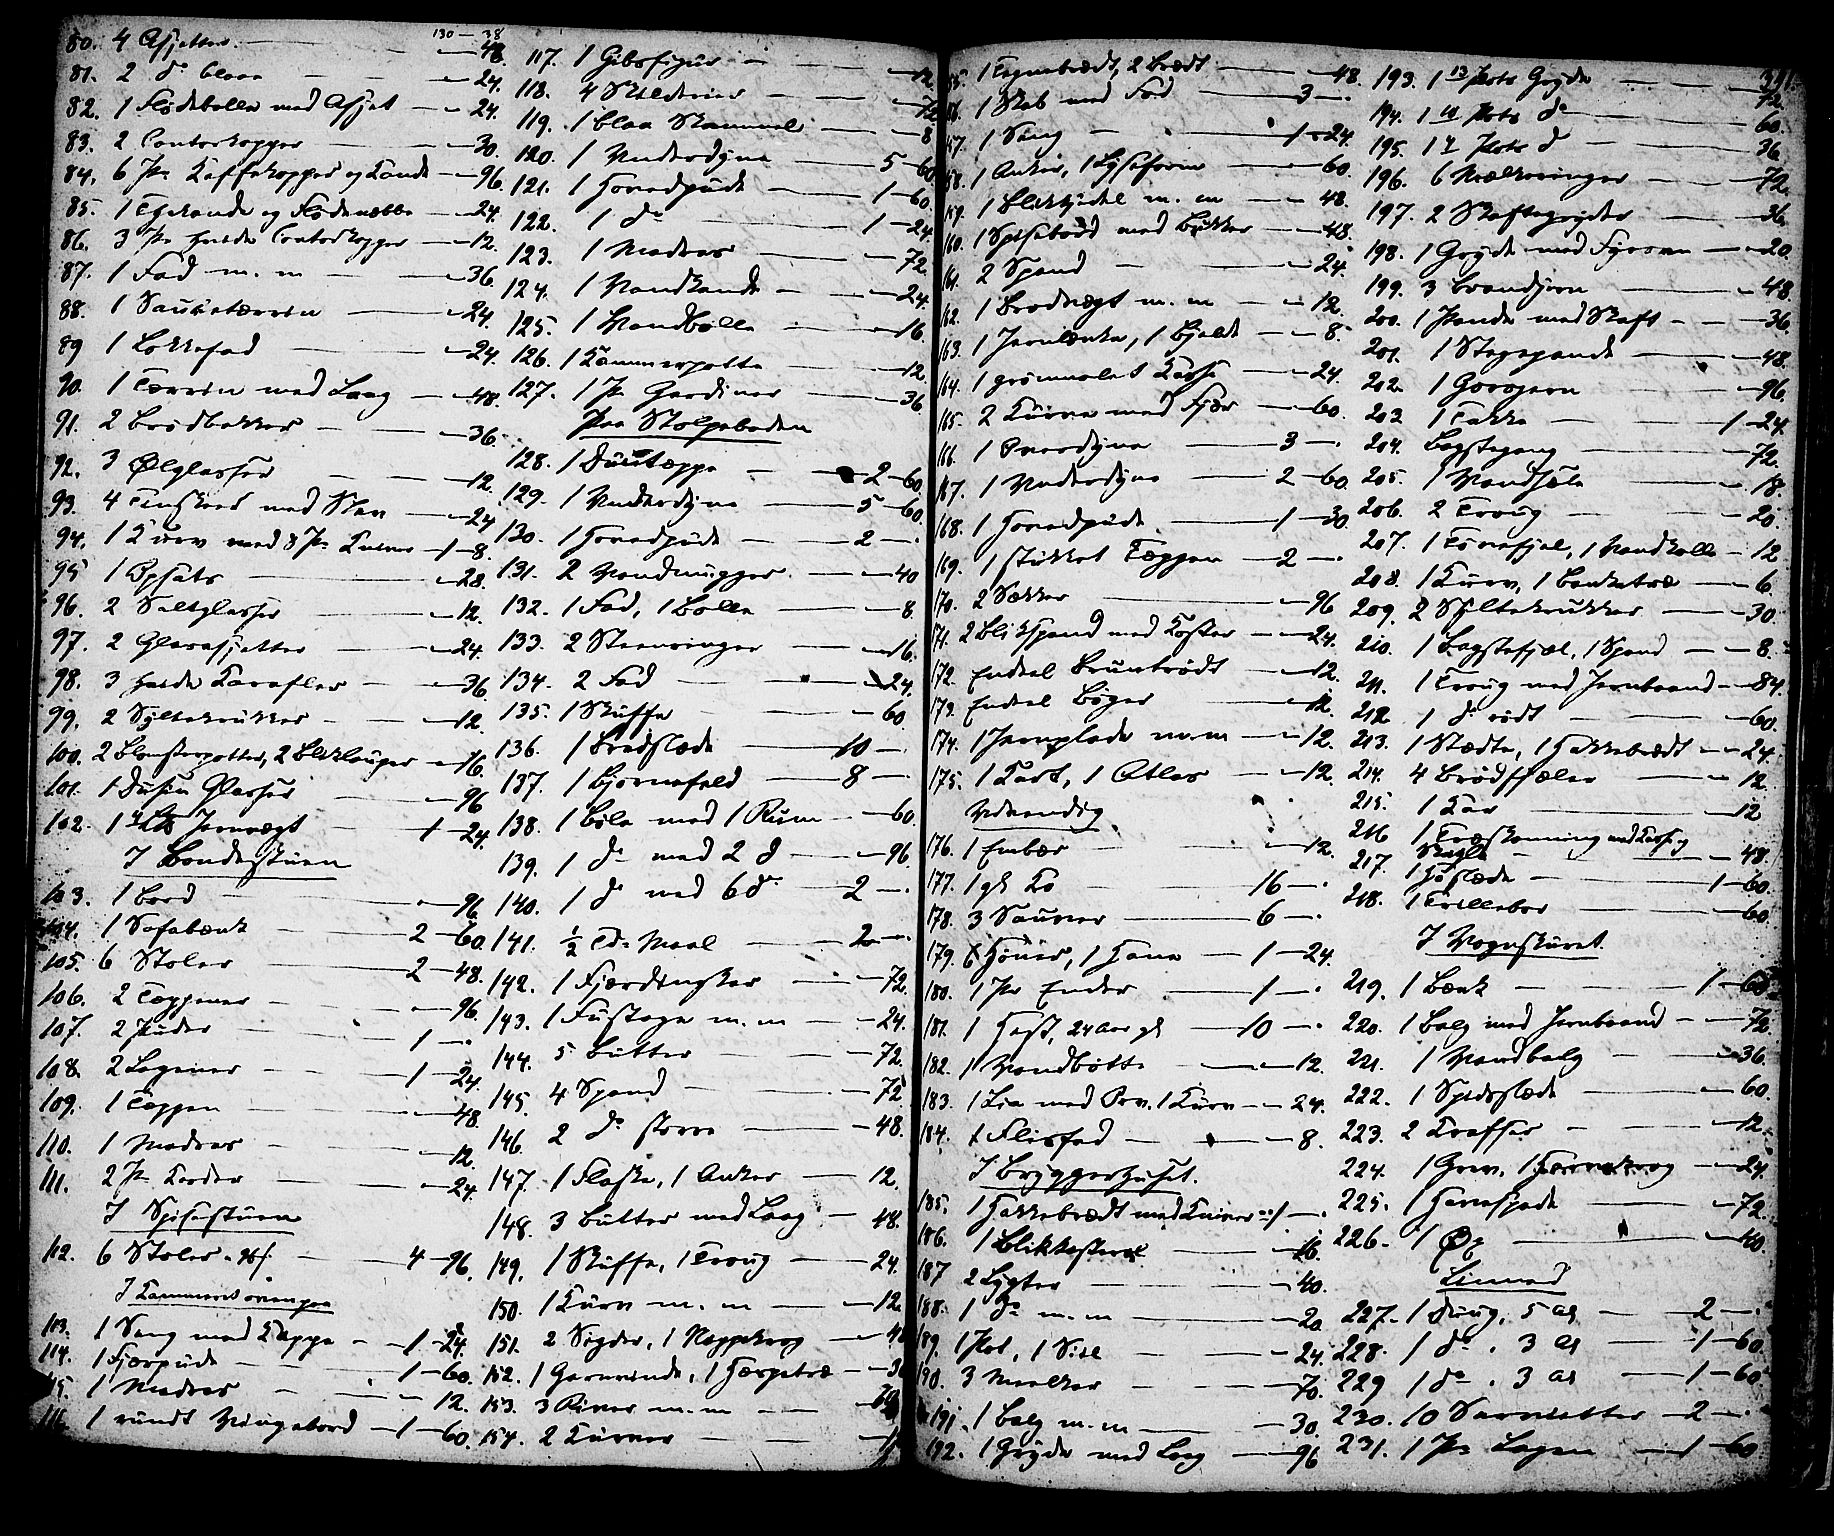 130 — 38
80. 4 Asjetter — 48.
81. 2 do blaae — 24.
82. 1 Flødebolle med Asjet — 24.
83. 2 Contorkopper — 30.
84. 6 Pr Kaffekopper og Kande — 96.
85. 1 Thekande og Flødenæbbe — 24.
86. 3 Pr hvide Contorkopper — 12.
87. 1 Fad m. m — 36.
88. 1 Sauceterrin — 24.
89 1 Lokkefad — 24.
90. 1 Terrin med Laag — 48.
91. 2 Brødbakker — 36.
92. 3 Ølglasser — 12.
93. 4 Tinskeer med Skee — 24
94. 1 Kurv med 8 Pr Knive — 1 — 8.
95 1 Opsats — 28.
96. 2 Saltglasser — 12.
97. 2 Glasasjetter — 24.
98. 3 hvide Karafler — 36.
99. 2 Syltekrukker — 12.
100. 2 Blomsterpotter, 2 Bliklamper — 16.
101. 1 Dusin Glasser — 96
102. 1 Jernvægt — 1 — 24.
I Bondestuen
103. 1 Bord — 96
104. 1 Sofabænk — 2 — 60.
105. 6 Stoler — 2 — 48.
106. 2 Tæppener — 96.
107. 2 Puder — 1 —
108. 2 Lagener — 1 — 24.
109. 1 Tæppen — 48.
110. 1 Madras — 12.
111. 2 Pr Karder — 24.
I Spisestuen
112. 6 Stoler — 4 — 96.
I Kammeret ovenpaa
113. 1 Seng med Kappe — 1 — 24.
114. 1 Fjærpude — 1 — 60.
115. 1 Madras — 12.
116. 1 rundt Vingebord — 1 — 60.
117. 1 Gibsfigur — 12.
118. 4 Skilderier — 72
119. 1 blaa Skammel — 8
120. 1 Underdyne — 5 — 60
121. 1 Hovedpude — 1 — 60.
122. 1 do — 1 — 24
123. 1 Madras — 72
124. 1 Vandkande — 24.
125. 1 Vandbolle — 16
126. 1 Kammerpotte — 12.
127. 1 Pr Gardiner — 36
Paa Stolpeboden
128. 1 Duuntæppe — 2 — 60.
129. 1 Underdyne — 5 — 60.
130. 1 Hovedpude — 2 —
131. 2 Vandmugger — 40
132. 1 Fad, 1 Bolle — 8
133. 2 Steenringer — 16.
134. 2 Fad — 24.
135. 1 Skuffe — 60
136. 1 Bredslæde — 10 —
137. 1 Bjørnefeld — 8 —
138. 1 Bøle med 1 Rum — 60
139. 1 do med 2 d — 96
140. 1 do med 6 d. — 2 —
141. ½ Tde Maal — 2 —
142. 1 Fjærdingskar — 72.
143. 1 Fustage m. m — 24.
144. 5 Butter — 72.
145. 4 Spand — 72
146. 2 do større — 48.
147. 1 Flaske, 1 Anker — 12.
148. 3 Butter med Laag — 48.
149. 1 Skuffe, 1 Troug — 24.
150. 1 Kurv m. m — 12.
151. 2 Sigder, 1 Neppekrog — 40
152. 1 Garnvinde, 1 Hærpetræ — 30
153. 3 River m. m
154. 2 Kurver
155. 1 Tegnebrædt, 2 Brædt — 48.
156. 1 Skab med Fod — 3 —
157. 1 Seng — 1 — 24.
158. 1 Anker, 1 Lyseform — 60.
159. 1 Blikkjedel m. m — 48.
160. 1 Spisebræd med Bukker — 48.
161. 2 Spand — 24.
162. 1 Brødvægt m. m — 12.
163. 1 Jernlænke, 1 Bjelde — 8.
164. 1 grønmalet Kasse — 24.
165. 2 Kurve med Fjær — 60.
166. 1 Overdyne — 3 —
167. 1 Underdyne — 2 — 60.
168. 1 Hovedpude — 1 — 30
169. 1 stukket Tæppen — 2 —
170. 2 Sækker — 96
171. 2 Blikspand med Koster — 24.
172. Endeel Bruunrødt — 12.
173. Endeel Bøger — 12.
174. 1 Jernplade m.m — 12.
175. 1 Kart, 1 Atlas — 12.
Udvendig
176. 1 Embær — 12.
177. 1 gl Ko — 16 —
178. 3 Sauver — 6 —
179. 6 Høner, 1 Hane — 1 — 24.
180. 1 Pr Ender — 1 —
181. 1 Hest, 24 Aar gl — 10 —
182. 1 Vandbøtte — 12.
183. 1 Lia med Orv, 1 Kurv — 24.
184. 1 Flisfad — 8.
I Bryggerhuset.
185. 1 Hakkebrædt med Kniver — 1 —
186. 1 Blikkasterol — 16.
187 2 Lygter — 40.
188. 1 do m. m — 20
189. 1 Pot, 1 Siel — 24.
190. 3 Meelker — 70.
191. 1 Balg m. m — 30.
192. 1 Gryde med Laag — 96
193. 1 13 Pots Gryde — 72.
194. 1 11 Pots do — 60.
195. 1 7 Pots d — 36
196. 6 Melkeringer — 72.
197. 2 Skaftegryder — 36
198. 1 Gryde med Fyrovn — 20.
199. 3 Brandjern — 48.
200. 1 Pande med Skaft — 36.
201. 1 Stegepande — 48.
202. 1 Gorojern — 96.
203 1 Takke — 1 — 24
204. Bagstegang — 72.
205. 1 Vandsele — 18.
206. 2 Troug — 20.
207. 1 Tørrefjæl, 1 Vandkolle — 12
208. 1 Kurv, 1 Banketræ — 6
209. 2 Syltekrukker — 30.
210. 1 Bagstefjæl, 1 Spand — 8.
211. 1 Troug med Jernbaand — 84.
212 1 do rødt — 60.
213. 1 Stædte, 1 Hakkebrædt — 24.
214. 4 Brødfjæler — 12.
215. 1 Kar — 12
216 1 Træskonning med Kasse og
217. Skagle — 48.
1 Høslæde — 1 — 60.
218. 1 Trillebør — 60.
I Vognskuret
219. 1 Bænk — 1 — 60
220. 1 Balg med Jernbaand — 72.
221. 1 Vandbalg — 36.
222. 1 Spidsslæde — 60.
223. 2 Krafser — 12.
224. 1 Grev, 1 — 24.
225. 1 Havespade — 72.
226. 1 Øx — 40.
Linned
227. 1 Duug, 5 Al — 2 —
228. 1 do. 3 Al — 1 — 60.
229 1 do. 3 Al — 1 — 60
230. 10 Servietter — 2 —
231. 1 Pr Lagen — 1 — 60